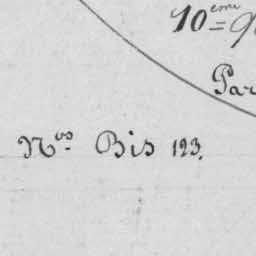 10eme
Par
Nos Bis 123.